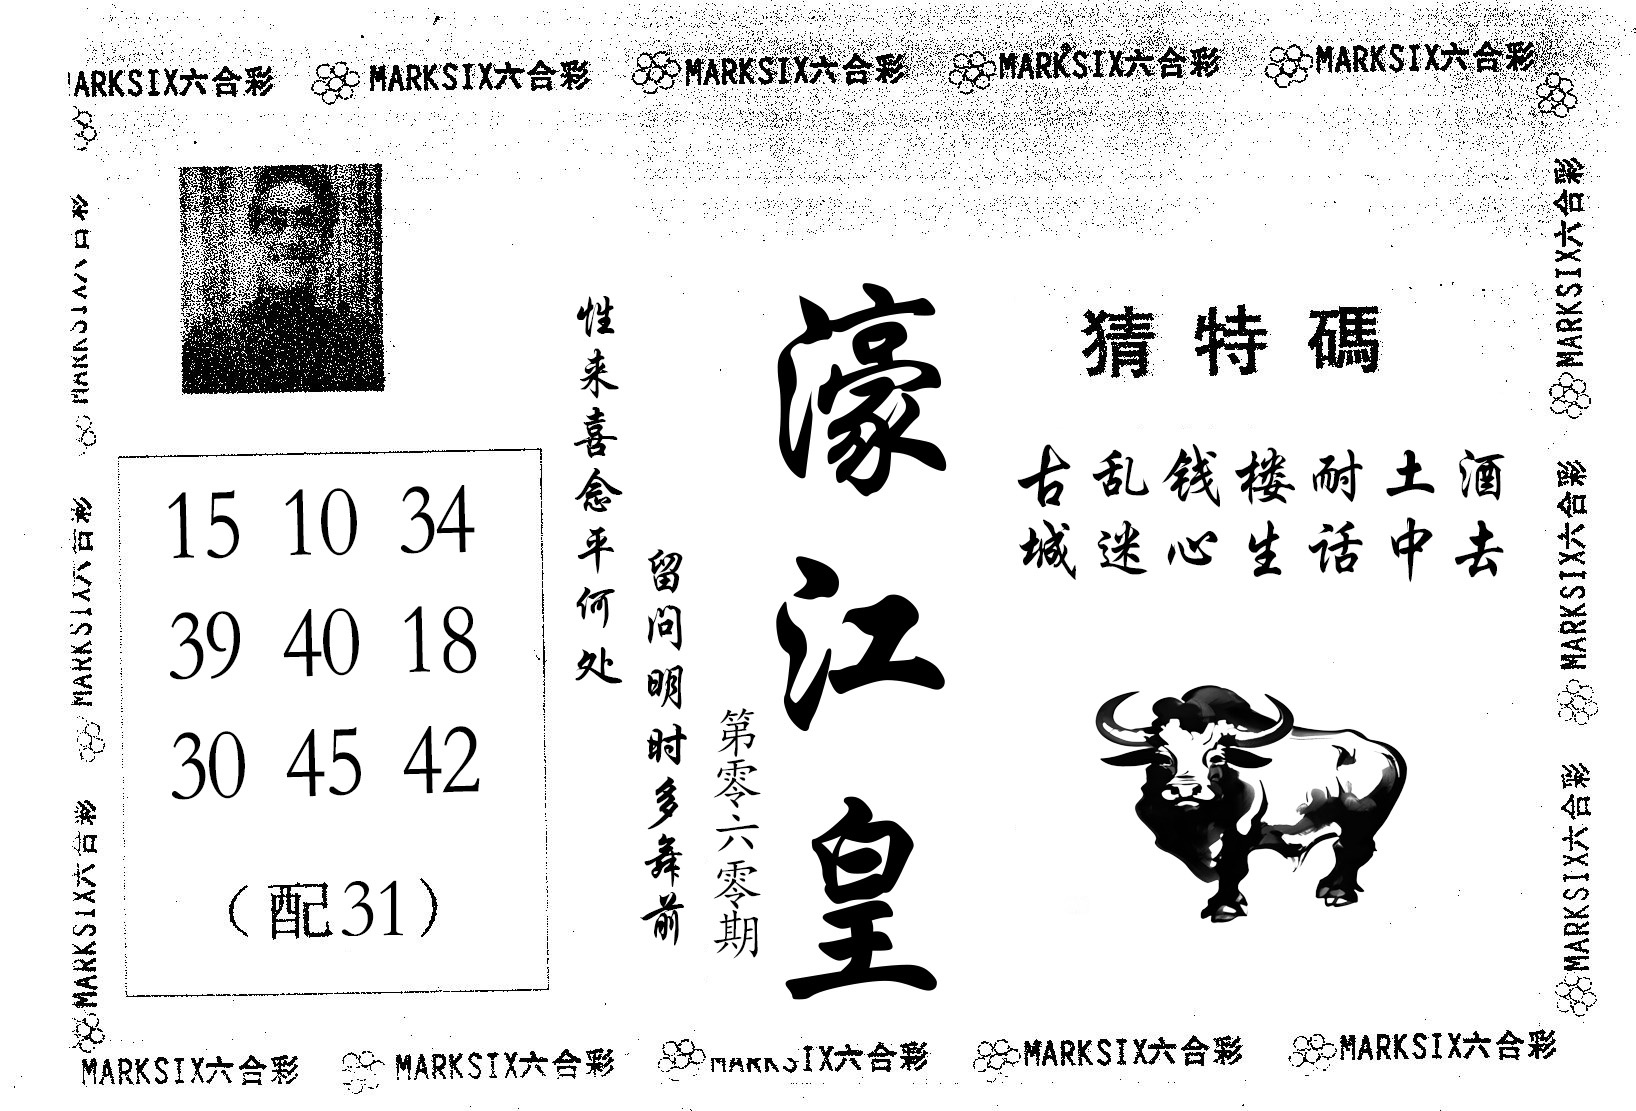 MARKSIX六合彩 MARKSIX六合彩 MARKSIX六合彩 MARKSIX六合彩
猜特碼
古乱钱楼耐土酒
城迷心生话中去
濠江皇
第零六零期
留问明时多舞前
性来喜念平何处
15 10 34
39 40 18
30 45 42
（配31）
MARKSIX六合彩
MARKSIX六合彩
MARKSIX六合彩
MARKSIX六合彩
MARKSIX六合彩
MARKSIX六合彩 MARKSIX六合彩 MARKSIX六合彩 MARKSIX六合彩